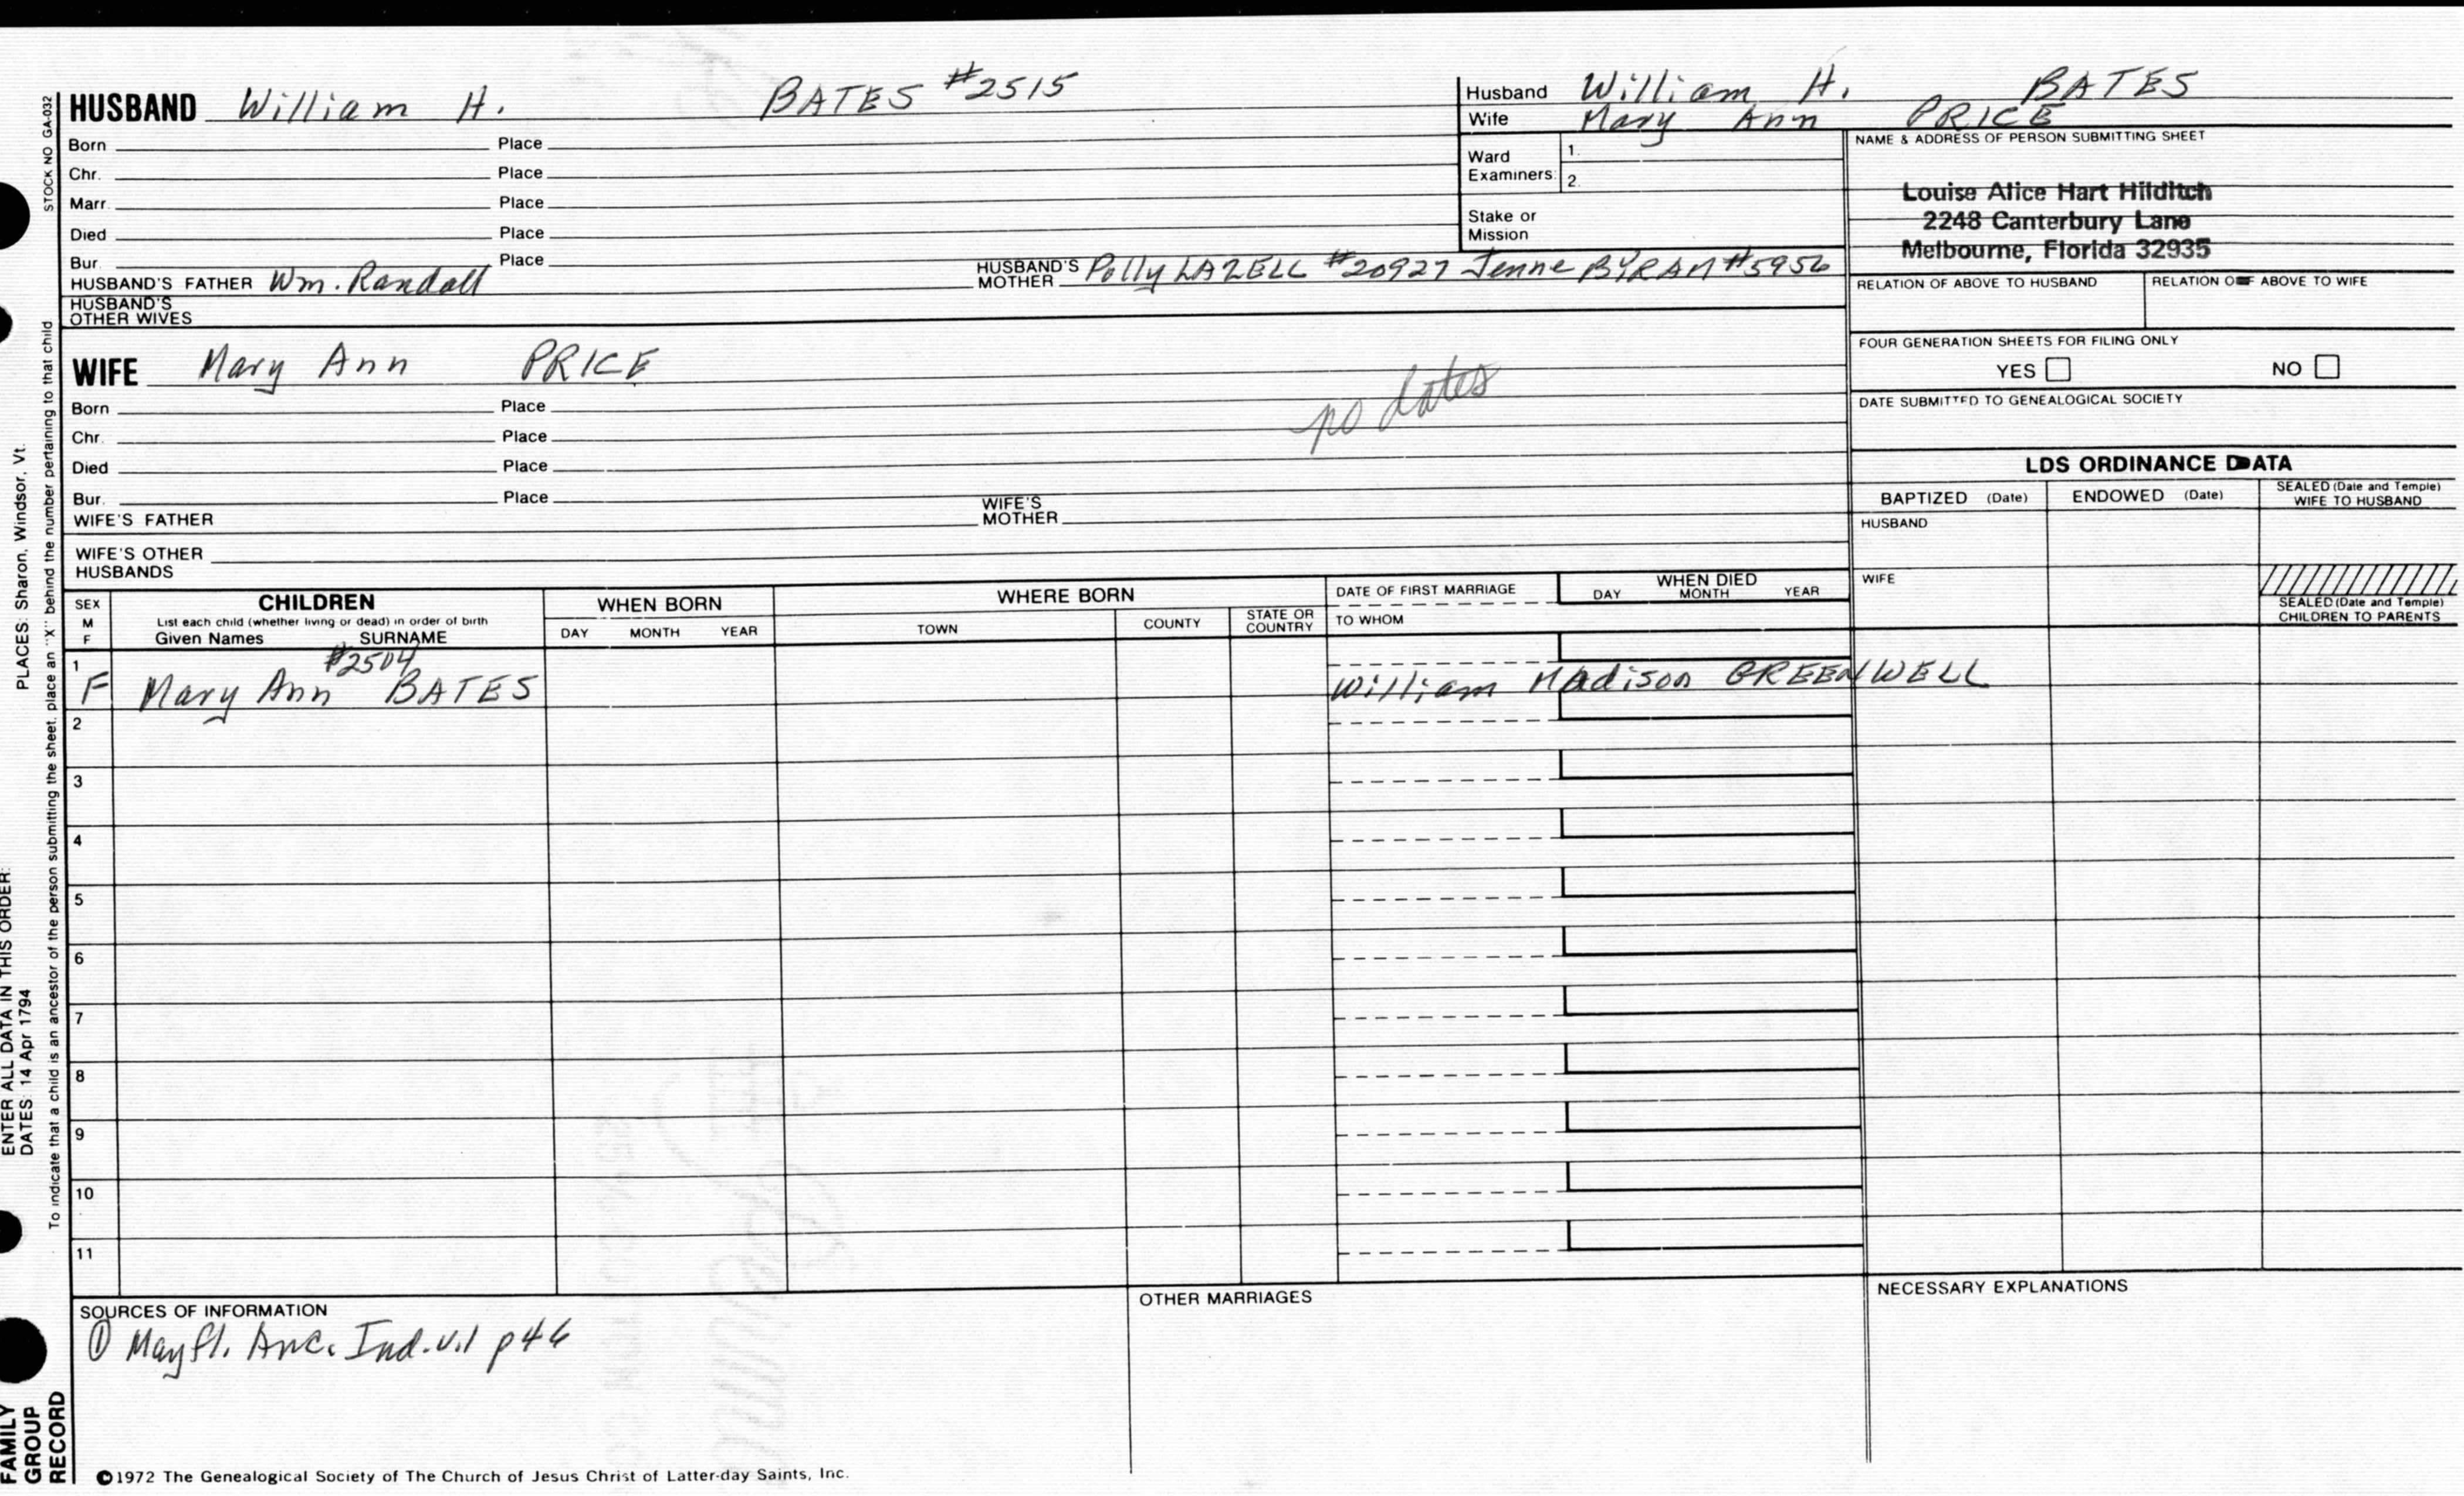 HUSBAND William H. BATES #2515
Born Place
Chr. Place
Marr. Place
Died Place
Bur. Place
HUSBAND'S FATHER Wm. Randall HUSBAND'S MOTHER Polly LAZELL #20927 Jenne BYRAM #5956
HUSBAND'S OTHER WIVES
Husband William H. BATES
Wife Mary Ann PRICE
Ward Examiners: 1.
2.
Stake or Mission
NAME & ADDRESS OF PERSON SUBMITTING SHEET
Louise Alice Hart Hilditch
2248 Canterbury Lane
Melbourne, Florida 32935
RELATION OF ABOVE TO HUSBAND RELATION OF ABOVE TO WIFE
FOUR GENERATION SHEETS FOR FILING ONLY
YES NO
DATE SUBMITTED TO GENEALOGICAL SOCIETY
WIFE Mary Ann PRICE
no dates
Born Place
Chr. Place
Died Place
Bur. Place
WIFE'S FATHER WIFE'S MOTHER
WIFE'S OTHER HUSBANDS
LDS ORDINANCE DATA
BAPTIZED (Date) ENDOWED (Date) SEALED (Date and Temple) WIFE TO HUSBAND
HUSBAND
WIFE
SEALED (Date and Temple) CHILDREN TO PARENTS
SEX M F
CHILDREN
List each child (whether living or dead) in order of birth
Given Names SURNAME
WHEN BORN
DAY MONTH YEAR
WHERE BORN
TOWN COUNTY STATE OR COUNTRY
DATE OF FIRST MARRIAGE
TO WHOM
WHEN DIED
DAY MONTH YEAR
#2504
1 F Mary Ann BATES William Madison GREENWELL
2
3
4
5
6
7
8
9
10
11
SOURCES OF INFORMATION
① Mayfl. Anc. Ind. v.1 p46
OTHER MARRIAGES
NECESSARY EXPLANATIONS
©1972 The Genealogical Society of The Church of Jesus Christ of Latter-day Saints, Inc.
STOCK NO GA-032
To indicate that a child is an ancestor of the person submitting the sheet, place an "X" behind the number pertaining to that child
PLACES: Sharon, Windsor, Vt.
ENTER ALL DATA IN THIS ORDER:
DATES: 14 Apr 1794
FAMILY
GROUP
RECORD